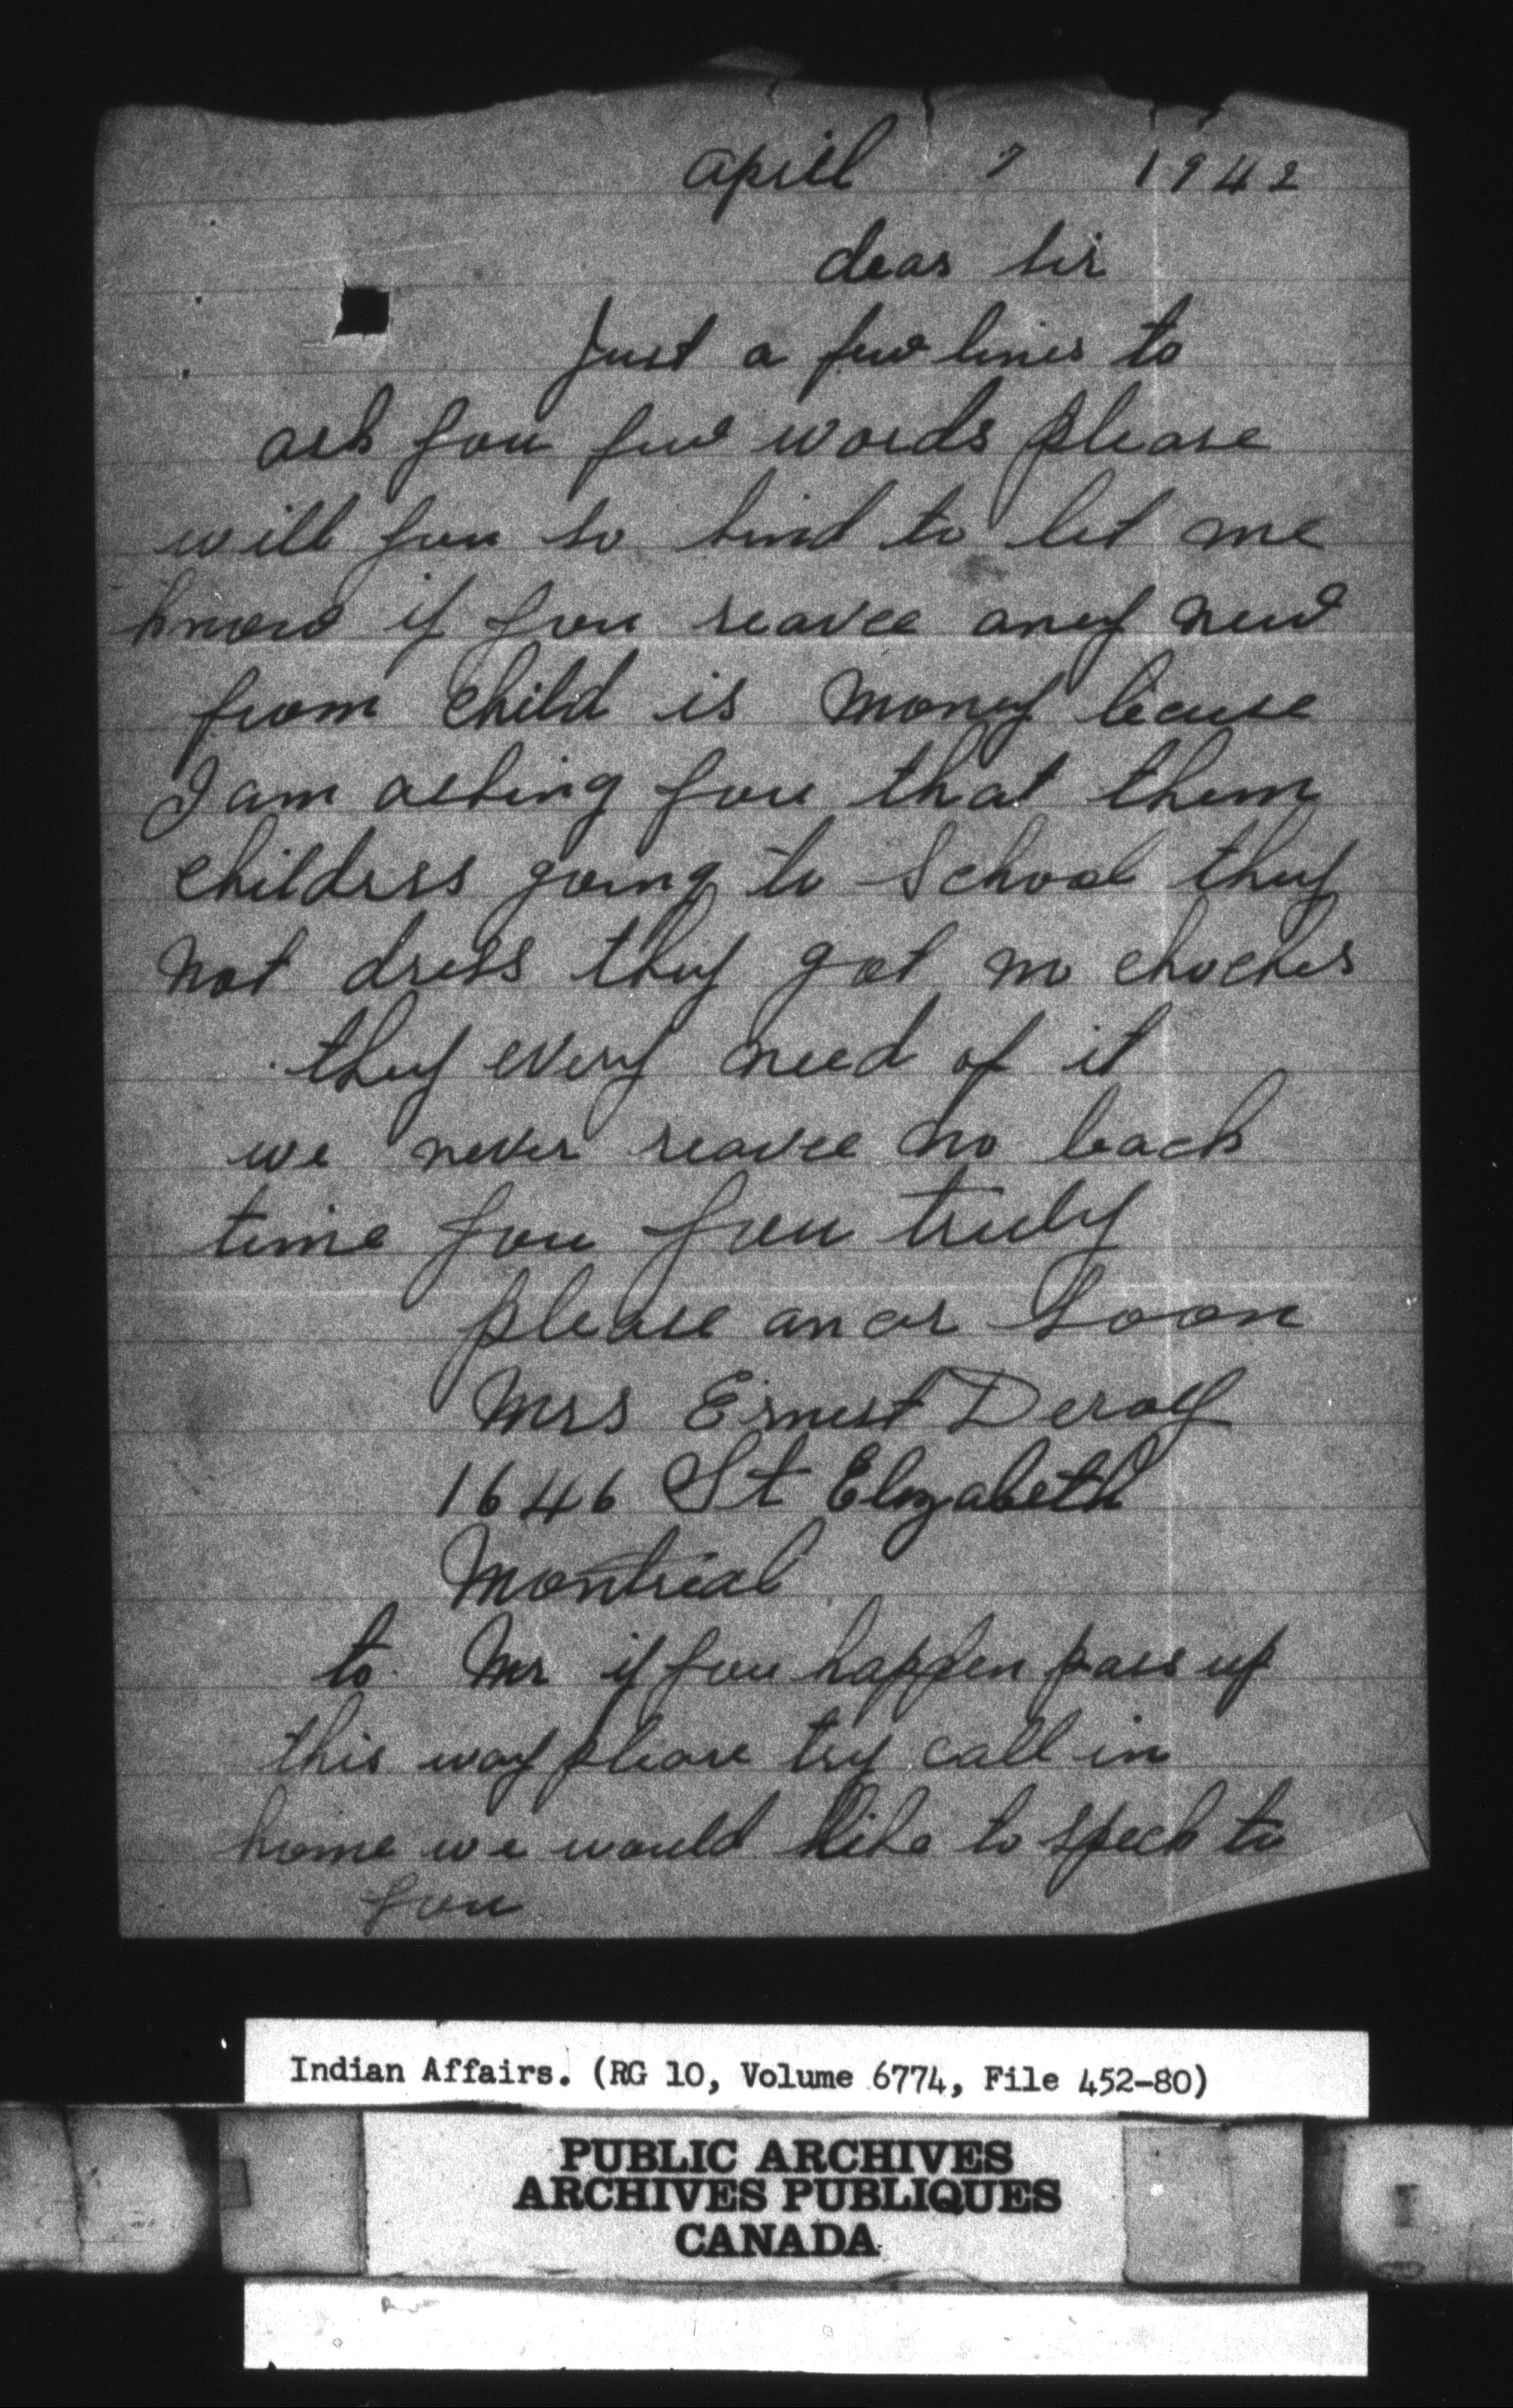 april 7 1942
dear sir
Just a few lines to
ask you few words please
will you so kind to let me
know if you reavee any new
from child is money becuse
I am asking you that them
childrss going to School they
not dress they got no choches
they every need of it
we never reavee no back
time you you truly
please ancor soon
Mrs Ernest Deroy
1646 St Elizabeth
Montreal
to Mr if you happen pass up
this way please try call in
home we would like to speek to
you
Indian Affairs. (RG 10, Volume 6774, File 452-80)
PUBLIC ARCHIVES
ARCHIVES PUBLIQUES
CANADA